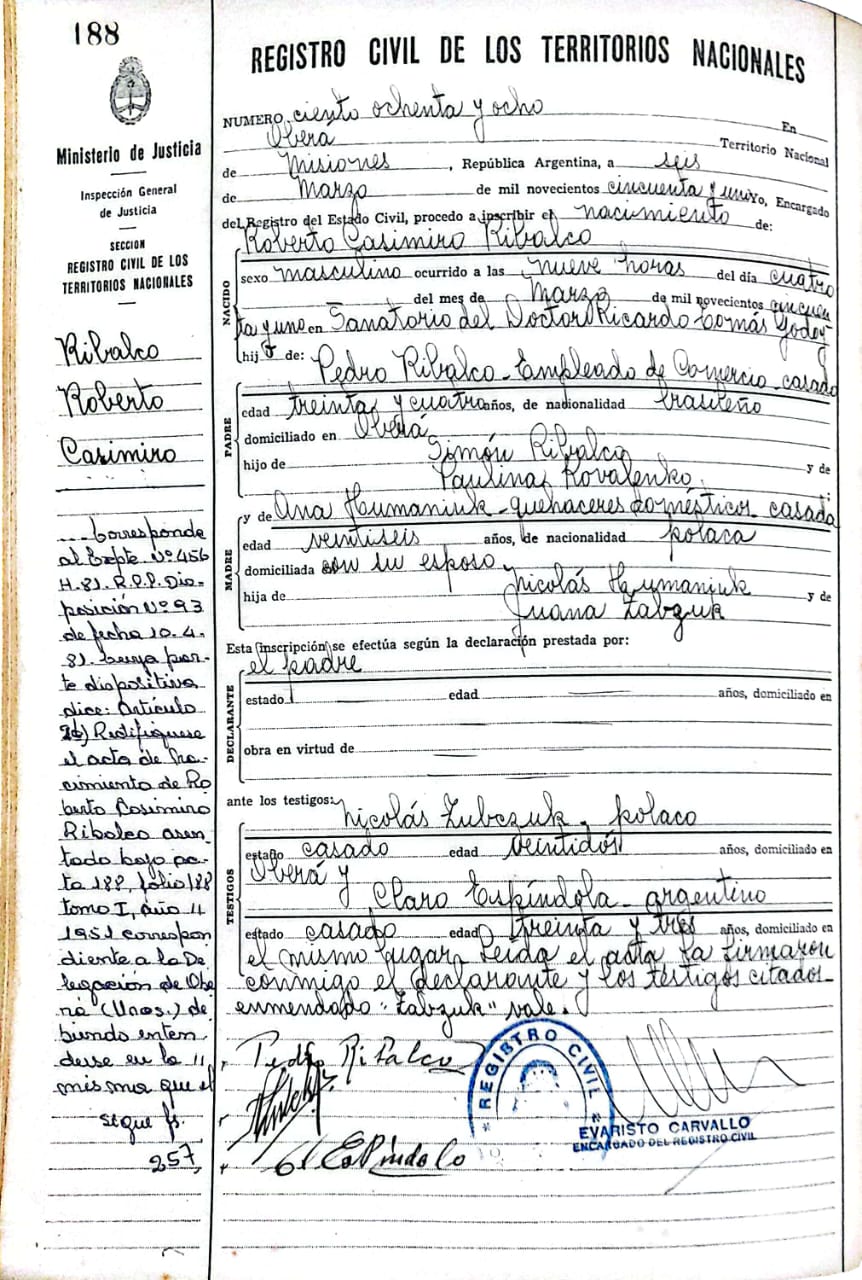 188
Ministerio de Justicia
Inspección General
de Justicia
SECCION
REGISTRO CIVIL DE LOS
TERRITORIOS NACIONALES
Ribalco
Roberto
Casimiro
Corresponde
al Expte. Nº 456
H. 81. R.P.P. Dis-
posición Nº 93
de fecha 10.4.
81. Cuya par-
te dispositiva
dice: Artículo
Rectifíquese
el acta de Na-
cimiento de Ro
berto Casimiro
Ribalco asen-
tado bajo ac-
ta 188, folio 188
tomo I, año 11
1951 correspon
diente a la De
legación de Obe
rá (Mnes.) de-
biendo enten
derse en la 11
misma que el
sigue fs.
257
REGISTRO CIVIL DE LOS TERRITORIOS NACIONALES
NUMERO ciento ochenta y ocho En
Oberá Territorio Nacional
de Misiones, República Argentina, a seis
de Marzo de mil novecientos cincuenta y uno Yo, Encargado
del Registro del Estado Civil, procedo a inscribir el nacimiento de:
NACIDO
Roberto Casimiro Ribalco
sexo masculino ocurrido a las nueve horas del día cuatro
del mes de Marzo de mil novecientos cincuen
ta y uno en Sanatorio del Doctor Ricardo Tomás Godoy
hijo de:
PADRE
Pedro Ribalco - Empleado de Comercio - casado
edad treinta y cuatro años, de nacionalidad brasileño
domiciliado en Oberá
hijo de Simón Ribalco y de
Paulina Kovalenko
MADRE
y de Ana Humaniuk - quehaceres domésticos - casada
edad veintiseis años, de nacionalidad polaca
domiciliada con su esposo
hija de Nicolás Humaniuk y de
Juana Zabzuk
Esta inscripción se efectúa según la declaración prestada por:
DECLARANTE
el padre
estado edad años, domiciliado en
obra en virtud de
ante los testigos:
TESTIGOS
Nicolás Zubczuk - polaco
estado casado edad veintidós años, domiciliado en
Oberá y
Claro Espíndola - argentino
estado casado edad treinta y tres años, domiciliado en
el mismo lugar Leída el acta la firmaron
conmigo el declarante y los testigos citados -
enmendado "Zabzuk" vale.
Pedro Ribalco
Espindola
REGISTRO CIVIL
EVARISTO CARVALLO
ENCARGADO DEL REGISTRO CIVIL